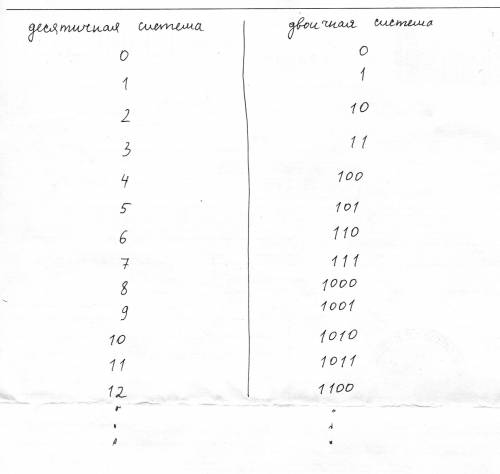 десятичная система двоичная система
0 0
1 1
2 10
3 11
4 100
5 101
6 110
7 111
8 1000
9 1001
10 1010
11 1011
12 1100
. .
. .
. .